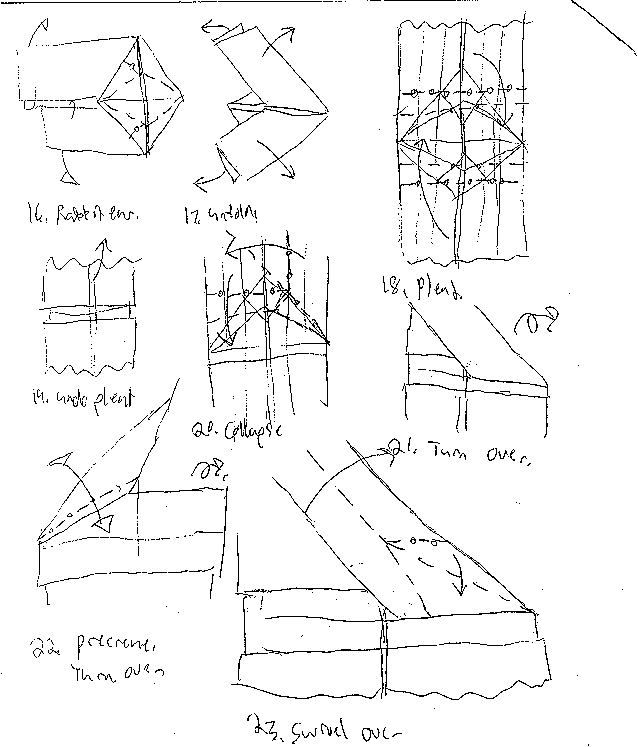 16. Rabbit ear.
17. unfold
18. pleat.
19. undo pleat
20. collapse
21. Turn over.
22. precrease,
Turn over
23. Swivel over